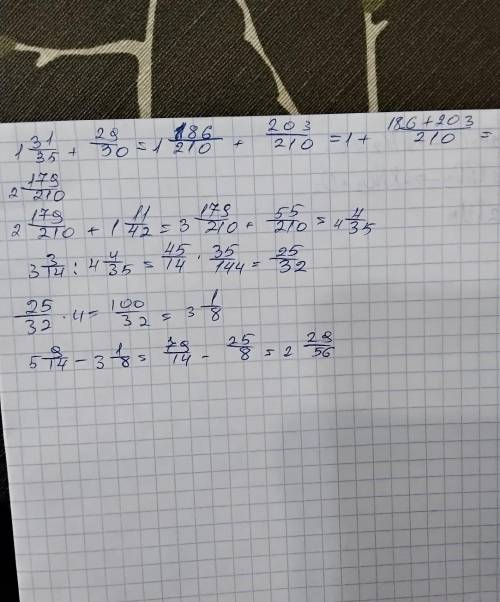 1 31/35 + 29/30 = 1 186/210 + 203/210 = 1 + 186+203/210 =
2 179/210
2 179/210 + 1 11/42 = 3 179/210 + 55/210 = 4 4/35
3 3/14 : 4 4/35 = 45/14 · 35/144 = 25/32
25/32 · 4 = 100/32 = 3 1/8
5 9/14 - 3 1/8 = 79/14 - 25/8 = 2 29/56